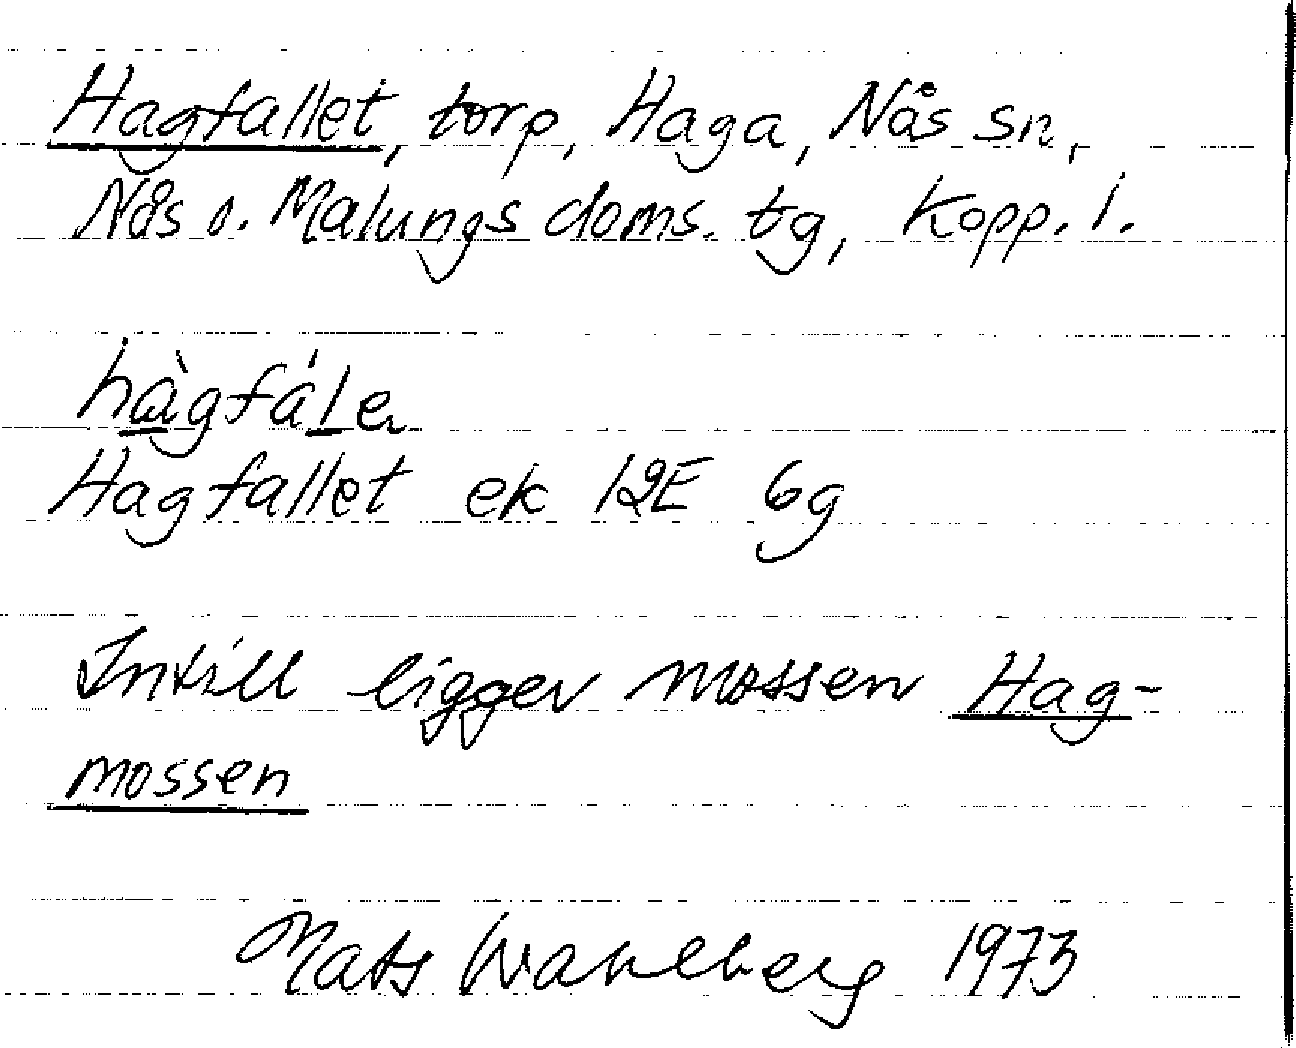 Hagfallet, torp, Haga, Nås sn,
Nås o. Malungs doms. tg, Kopp. l.
hàgfáLe
Hagfallet ek 12E 6g
Intill ligger mossen Hag-
mossen
Mats Wahlberg 1973